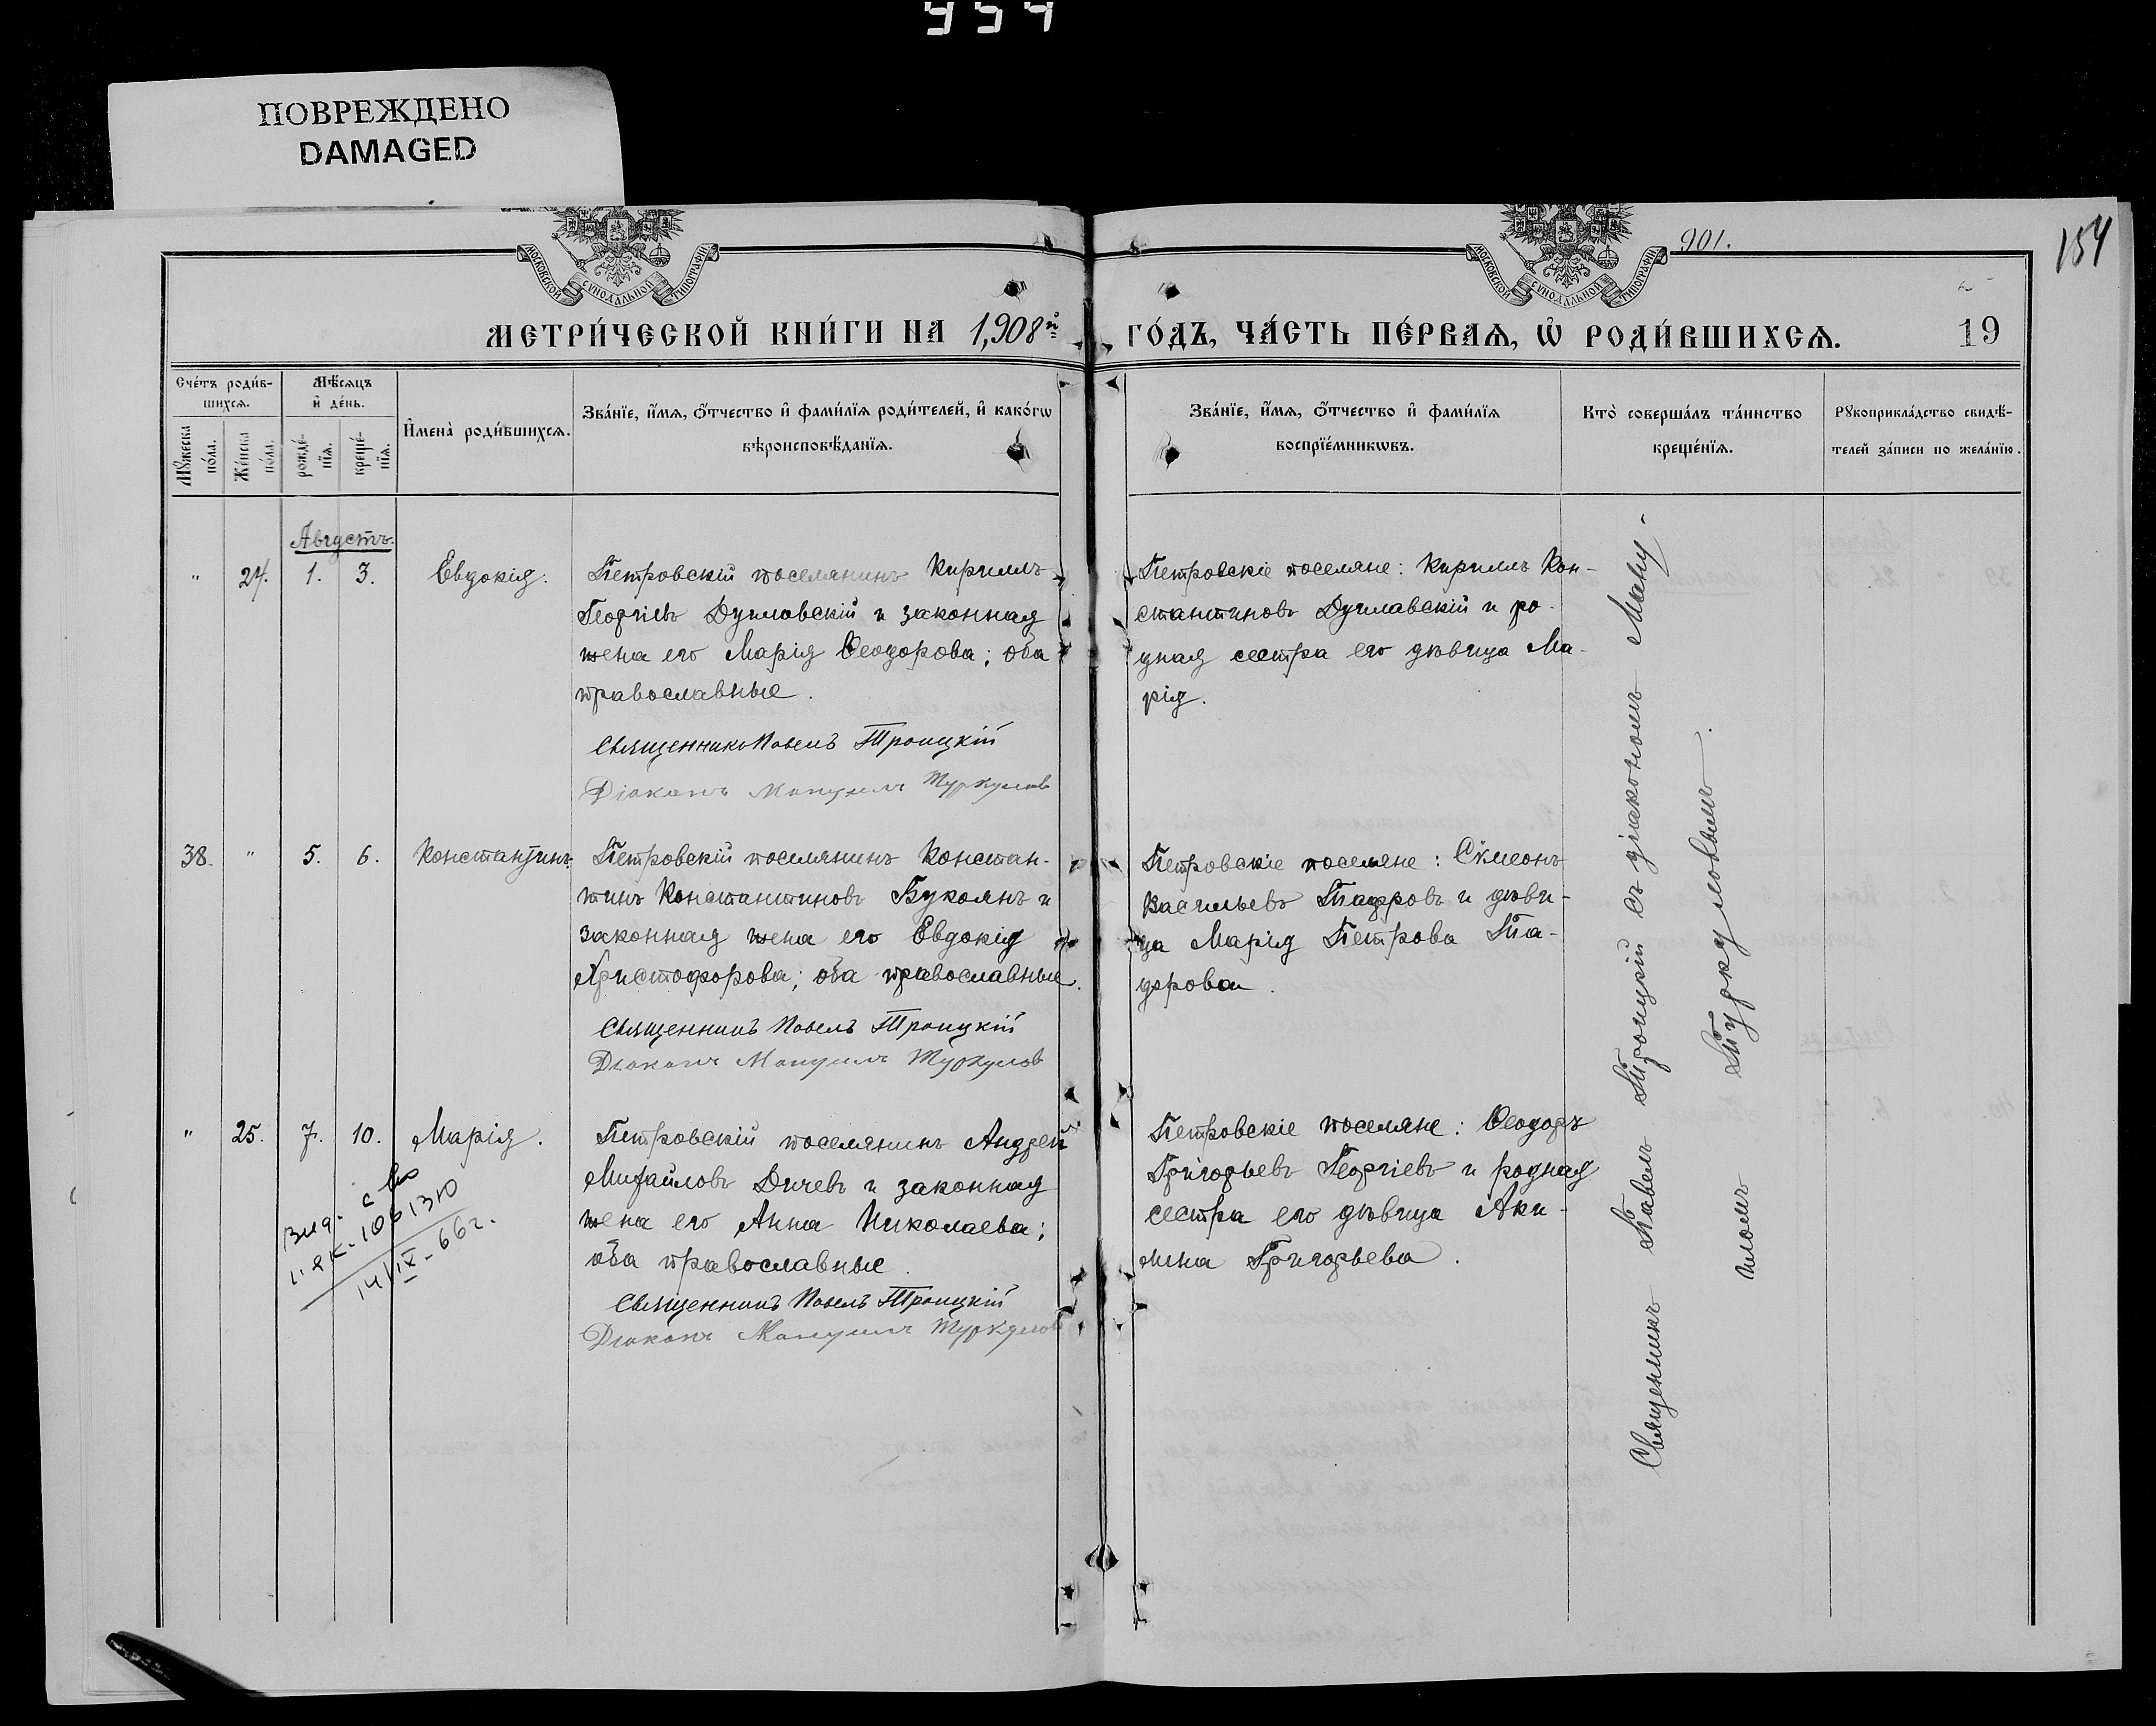 954
ПОВРЕЖДЕНО
DAMAGED
901.
154
МОСКОВСКОЙ СѴНОДАЛЬНОЙ ТИПОГРАФІИ
МОСКОВСКОЙ СѴНОДАЛЬНОЙ ТИПОГРАФІИ
МЕТРИ́ЧЕСКОЙ КНИ́ГИ НА 1,908й ГО́ДЪ, ЧА́СТЬ ПЕ́РВАѦ, Ѡ҆ РОДИ́ВШИХСѦ.
19
Сче́тъ роди́в-
шихсѧ.
Мꙋ́жеска по́ла.
Же́нска по́ла.
Мѣ́сѧцъ
и҆ де́нь.
рожде́-
нїѧ.
креще́-
нїѧ.
И҆мена̀ роди́вшихсѧ.
Зва́нїе, и҆́мѧ, ѻ҆́тчество и҆ фами́лїѧ роди́телей, и҆ како́гѡ
вѣроисповѣ́данїѧ.
Зва́нїе, и҆́мѧ, ѻ҆́тчество и҆ фами́лїѧ
воспрїе́мникѡвъ.
Кто̀ соверша́лъ та́инство
креще́нїѧ.
Рꙋкоприкла́дство свидѣ́-
телей за́писи по жела́нїю.
Августъ.
" 24. 1. 3. Евдокія.
Петровскій поселянинъ Кириллъ
Георгіевъ Душлавскій и законная
жена его Марія Ѳеодорова; оба
православные.
Священникъ Павелъ Троицкій
Діаконъ Мануилъ Туркулов
Петровскіе поселяне: Кириллъ Кон-
стантиновъ Душлавскій и ро-
дная сестра его дѣвица Ма-
рія.
38. " 5. 6. Константинъ.
Петровскій поселянинъ Констан-
тинъ Константиновъ Буколнъ и
законная жена его Евдокія
Христофорова; оба православные.
Священникъ Павелъ Троицкій
Діаконъ Мануилъ Туркулов
Петровскіе поселяне: Сѵмеонъ
Васильевъ Тадоровъ и дѣви-
ца Марія Петрова Та-
дорова.
" 25. 7. 10. Марія.
Петровскій поселянинъ Андрей
Михайловъ Дичевъ и законная
жена его Анна Николаева;
оба православные.
Священникъ Павелъ Троицкій
Діаконъ Мануилъ Туркулов
Петровскіе поселяне: Ѳеодоръ
Григорьевъ Георгіевъ и родная
сестра его дѣвица Аки-
лина Григорьева.
14/IX-66г.
Священникъ Павелъ Троицкій съ діакономъ Ману-
иломъ Туркуловымъ.